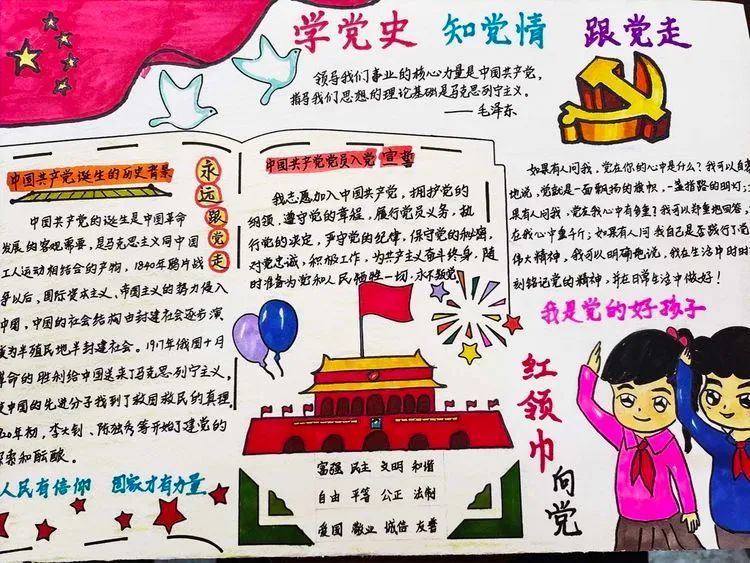 学党史 知党情 跟党走
领导我们事业的核心力量是中国共产党，
指导我们思想的理论基础是马克思列宁主义。
——毛泽东
中国共产党诞生的历史背景
永远跟党走
中国共产党的诞生是中国革命
发展的客观需要，是马克思主义同中国
工人运动相结合的产物，1840年鸦片战
争以后，国际资本主义、帝国主义的势力侵入
中国，中国的社会结构由封建社会逐步演
变为半殖民地半封建社会。1917年俄国十月
革命的胜利给中国送来了马克思列宁主义，
使中国的先进分子找到了救国救民的真理
1920年初，李大钊、陈独秀等开始了建党的
探索和酝酿。
人民有信仰 国家才有力量
中国共产党党员入党宣誓
我志愿加入中国共产党，拥护党的
纲领，遵守党的章程，履行党员义务，执
行党的决定，严守党的纪律，保守党的秘密，
对党忠诚，积极工作，为共产主义奋斗终身，随
时准备为党和人民牺牲一切，永不叛党
富强 民主 文明 和谐
自由 平等 公正 法制
爱国 敬业 诚信 友善
如果有人问我，党在你的心中是什么？我可以自豪
地说，党就是一面飘扬的旗帜，一盏指路的明灯；
果有人问我，党在我心中有多重？我可以郑重地回答，
在我心中重千斤；如果有人问我自己是否践行了党
伟大精神，我可以明确地说，我在生活中时时
刻铭记党的精神，并在日常生活中做好！
我是党的好孩子
红领巾向党